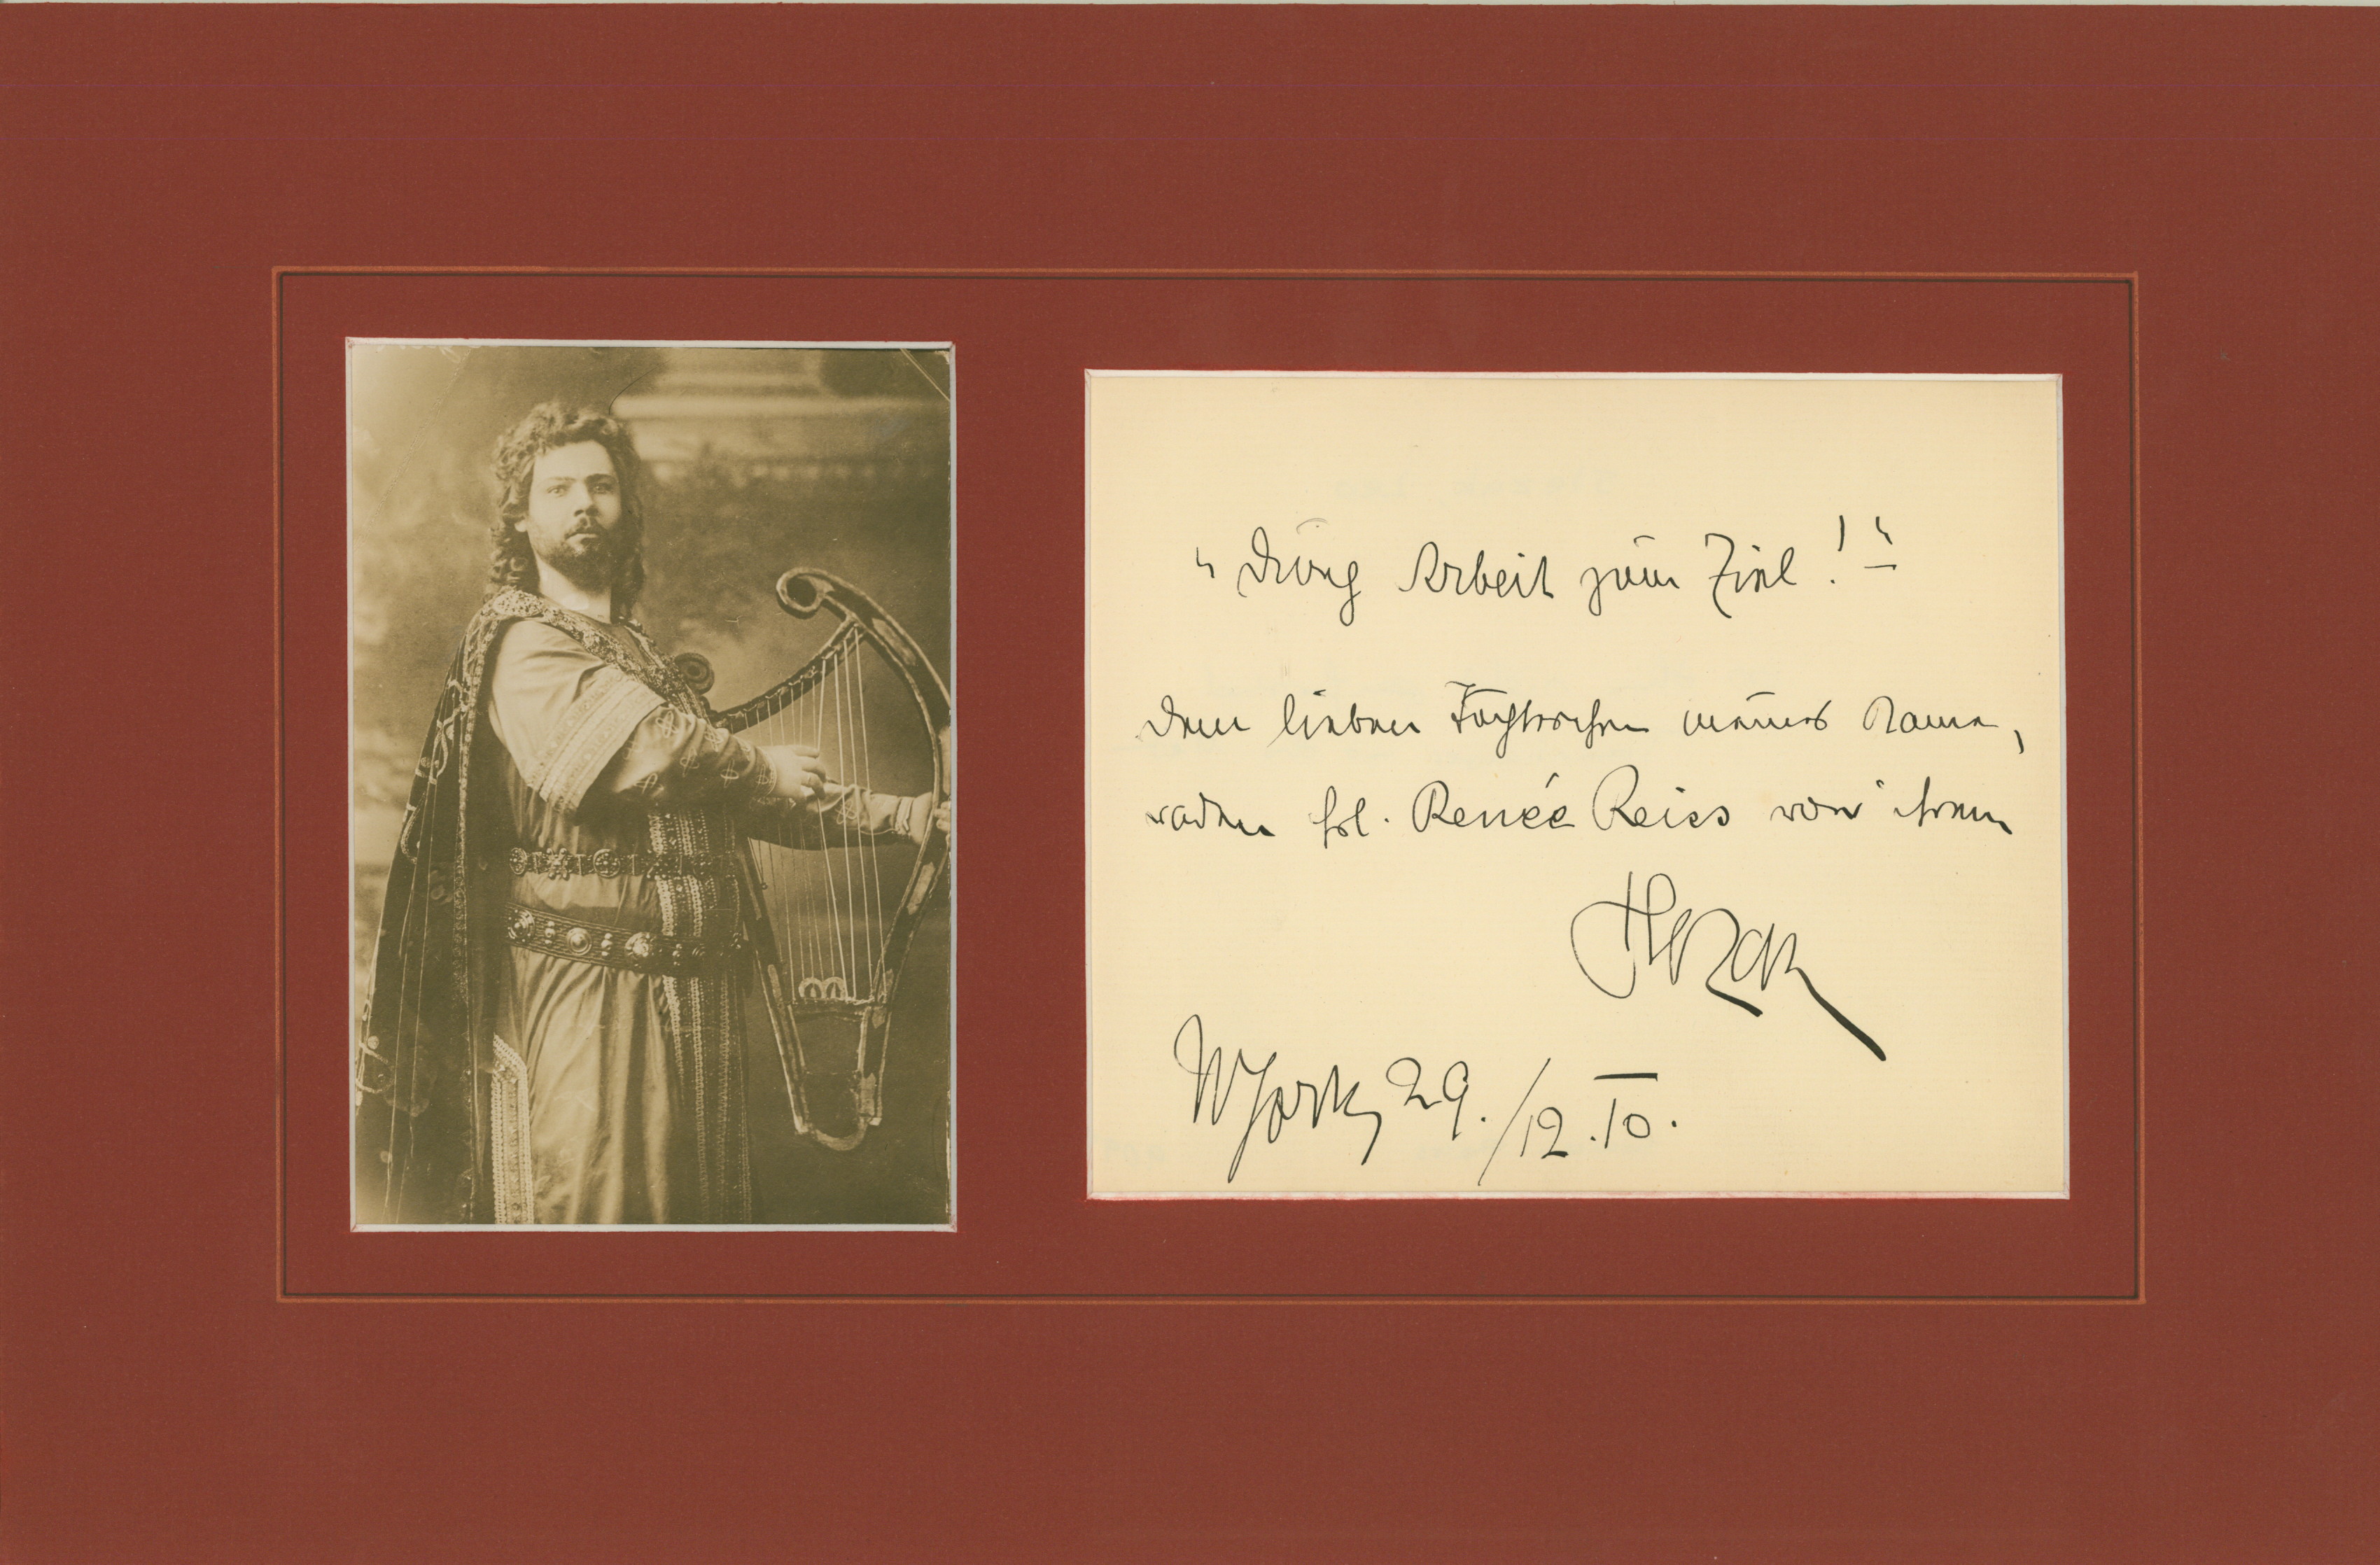 „Durch Arbeit zum Ziel!“
Dem lieben Töchterchen meines Kame-
raden Frl. Renée Reiss von ihrem
Slezak
NYork, 29./12.10.